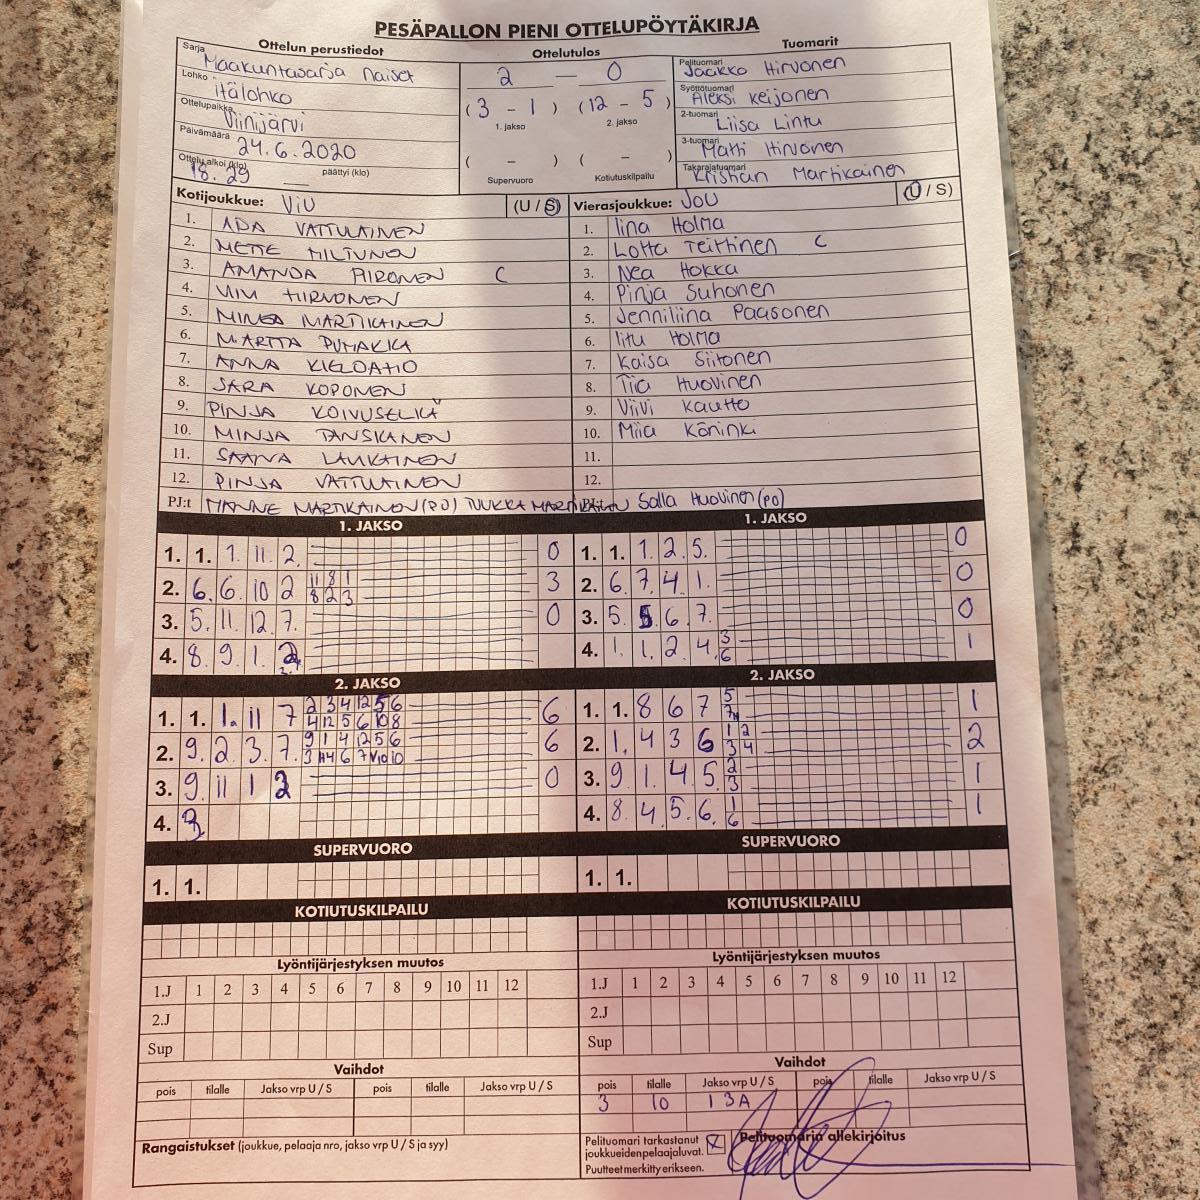 PESÄPALLON PIENI OTTELUPÖYTÄKIRJA
Ottelun perustiedot
Sarja Maakuntasarja Naiset
Lohko itälohko
Ottelupaikka Viinijärvi
Päivämäärä 24.6.2020
Ottelu alkoi (klo) 18.29 päättyi (klo)
Ottelutulos
2 — 0
(3 - 1) (12 - 5)
1. jakso 2. jakso
( - ) ( - )
Supervuoro Kotiutuskilpailu
Tuomarit
Pelituomari Jaakko Hirvonen
Syöttötuomari Aleksi Keijonen
2-tuomari Liisa Lintu
3-tuomari Matti Hirvonen
Takarajatuomari Kristian Martikainen
Kotijoukkue: ViU (U / S)
1. ADA VATTULAINEN
2. METTE MILTUNEN
3. AMANDA PIRONEN C
4. VIIVI HIRVONEN
5. MINEA MARTIKAINEN
6. MARTTA PUHAKKA
7. ANNA KIELOAHO
8. SARA KOPONEN
9. PINJA KOIVUSELKÄ
10. MINJA TANSKANEN
11. SAANA LAUKAINEN
12. PINJA VATTULAINEN
PJ:t HANNE MARTIKAINEN (PO) TUUKKA MARTIKAINEN
Vierasjoukkue: JoU (U / S)
1. Iina Holma
2. Lotta Teittinen C
3. Nea Hokka
4. Pinja Suhonen
5. Jenniliina Paasonen
6. Iitu Holma
7. Kaisa Siitonen
8. Tiia Huovinen
9. Viivi Kautto
10. Miia Köninki
11.
12.
PJ:t Salla Huovinen (PO)
1. JAKSO
1. 1. 1. 11. 2. 0
2. 6. 6. 10 2 11 8 1 3
8 2 3
3. 5. 11. 12. 7. 0
4. 8. 9. 1. 2.
1. JAKSO
1. 1. 1. 2. 5. 0
2. 6. 7. 4. 1. 0
3. 5. 5. 6. 7. 0
4. 1. 1. 2 4. 3 1
6
2. JAKSO
1. 1. 1. 11 7 2 3 4 12 5 6 6
4 12 5 6 10 8
2. 9. 2. 3. 7. 9 1 4 12 5 6 6
3. 9. 11 1 2 0
4. 3.
2. JAKSO
1. 1. 8 6 7 5 1
2. 1. 4 3 6 1 2 2
3 4
3. 9 1. 4 5 2 1
3
4. 8. 4. 5. 6. 1 1
6
SUPERVUORO
1. 1.
SUPERVUORO
1. 1.
KOTIUTUSKILPAILU
KOTIUTUSKILPAILU
Lyöntijärjestyksen muutos
1.J 1 2 3 4 5 6 7 8 9 10 11 12
2.J
Sup
Lyöntijärjestyksen muutos
1.J 1 2 3 4 5 6 7 8 9 10 11 12
2.J
Sup
Vaihdot
pois tilalle Jakso vrp U / S pois tilalle Jakso vrp U / S
Vaihdot
pois tilalle Jakso vrp U / S pois tilalle Jakso vrp U / S
3 10 1 3A
Rangaistukset (joukkue, pelaaja nro, jakso vrp U / S ja syy)
Pelituomari tarkastanut
joukkueiden pelaajaluvat. X
Puutteet merkitty erikseen.
Pelituomarin allekirjoitus